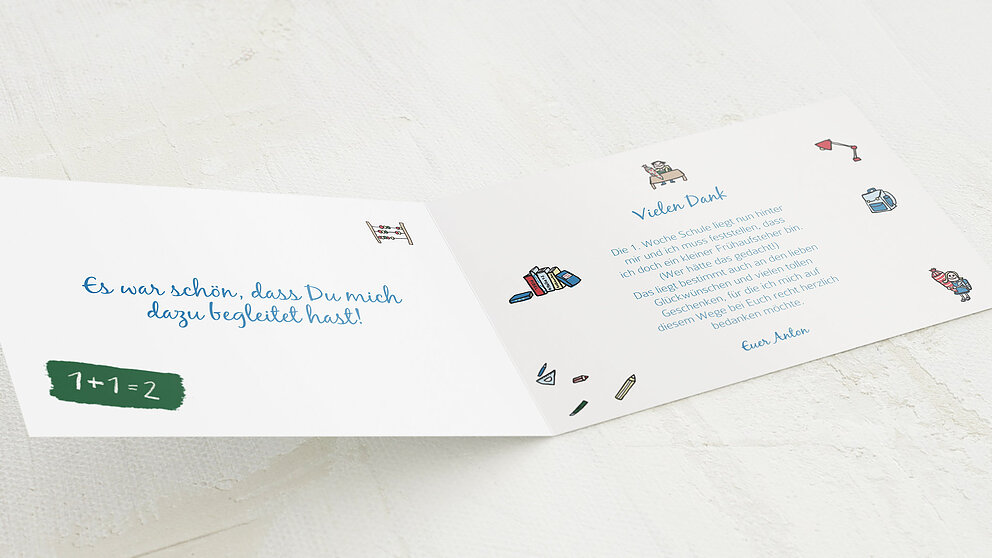 Es war schön, dass Du mich
dazu begleitet hast!
1+1=2
Vielen Dank
Die 1. Woche Schule liegt nun hinter
mir und ich muss feststellen, dass
ich doch ein kleiner Frühaufsteher bin.
(Wer hätte das gedacht!)
Das liegt bestimmt auch an den lieben
Glückwünschen und vielen tollen
Geschenken, für die ich mich auf
diesem Wege bei Euch recht herzlich
bedanken möchte.
Euer Anton